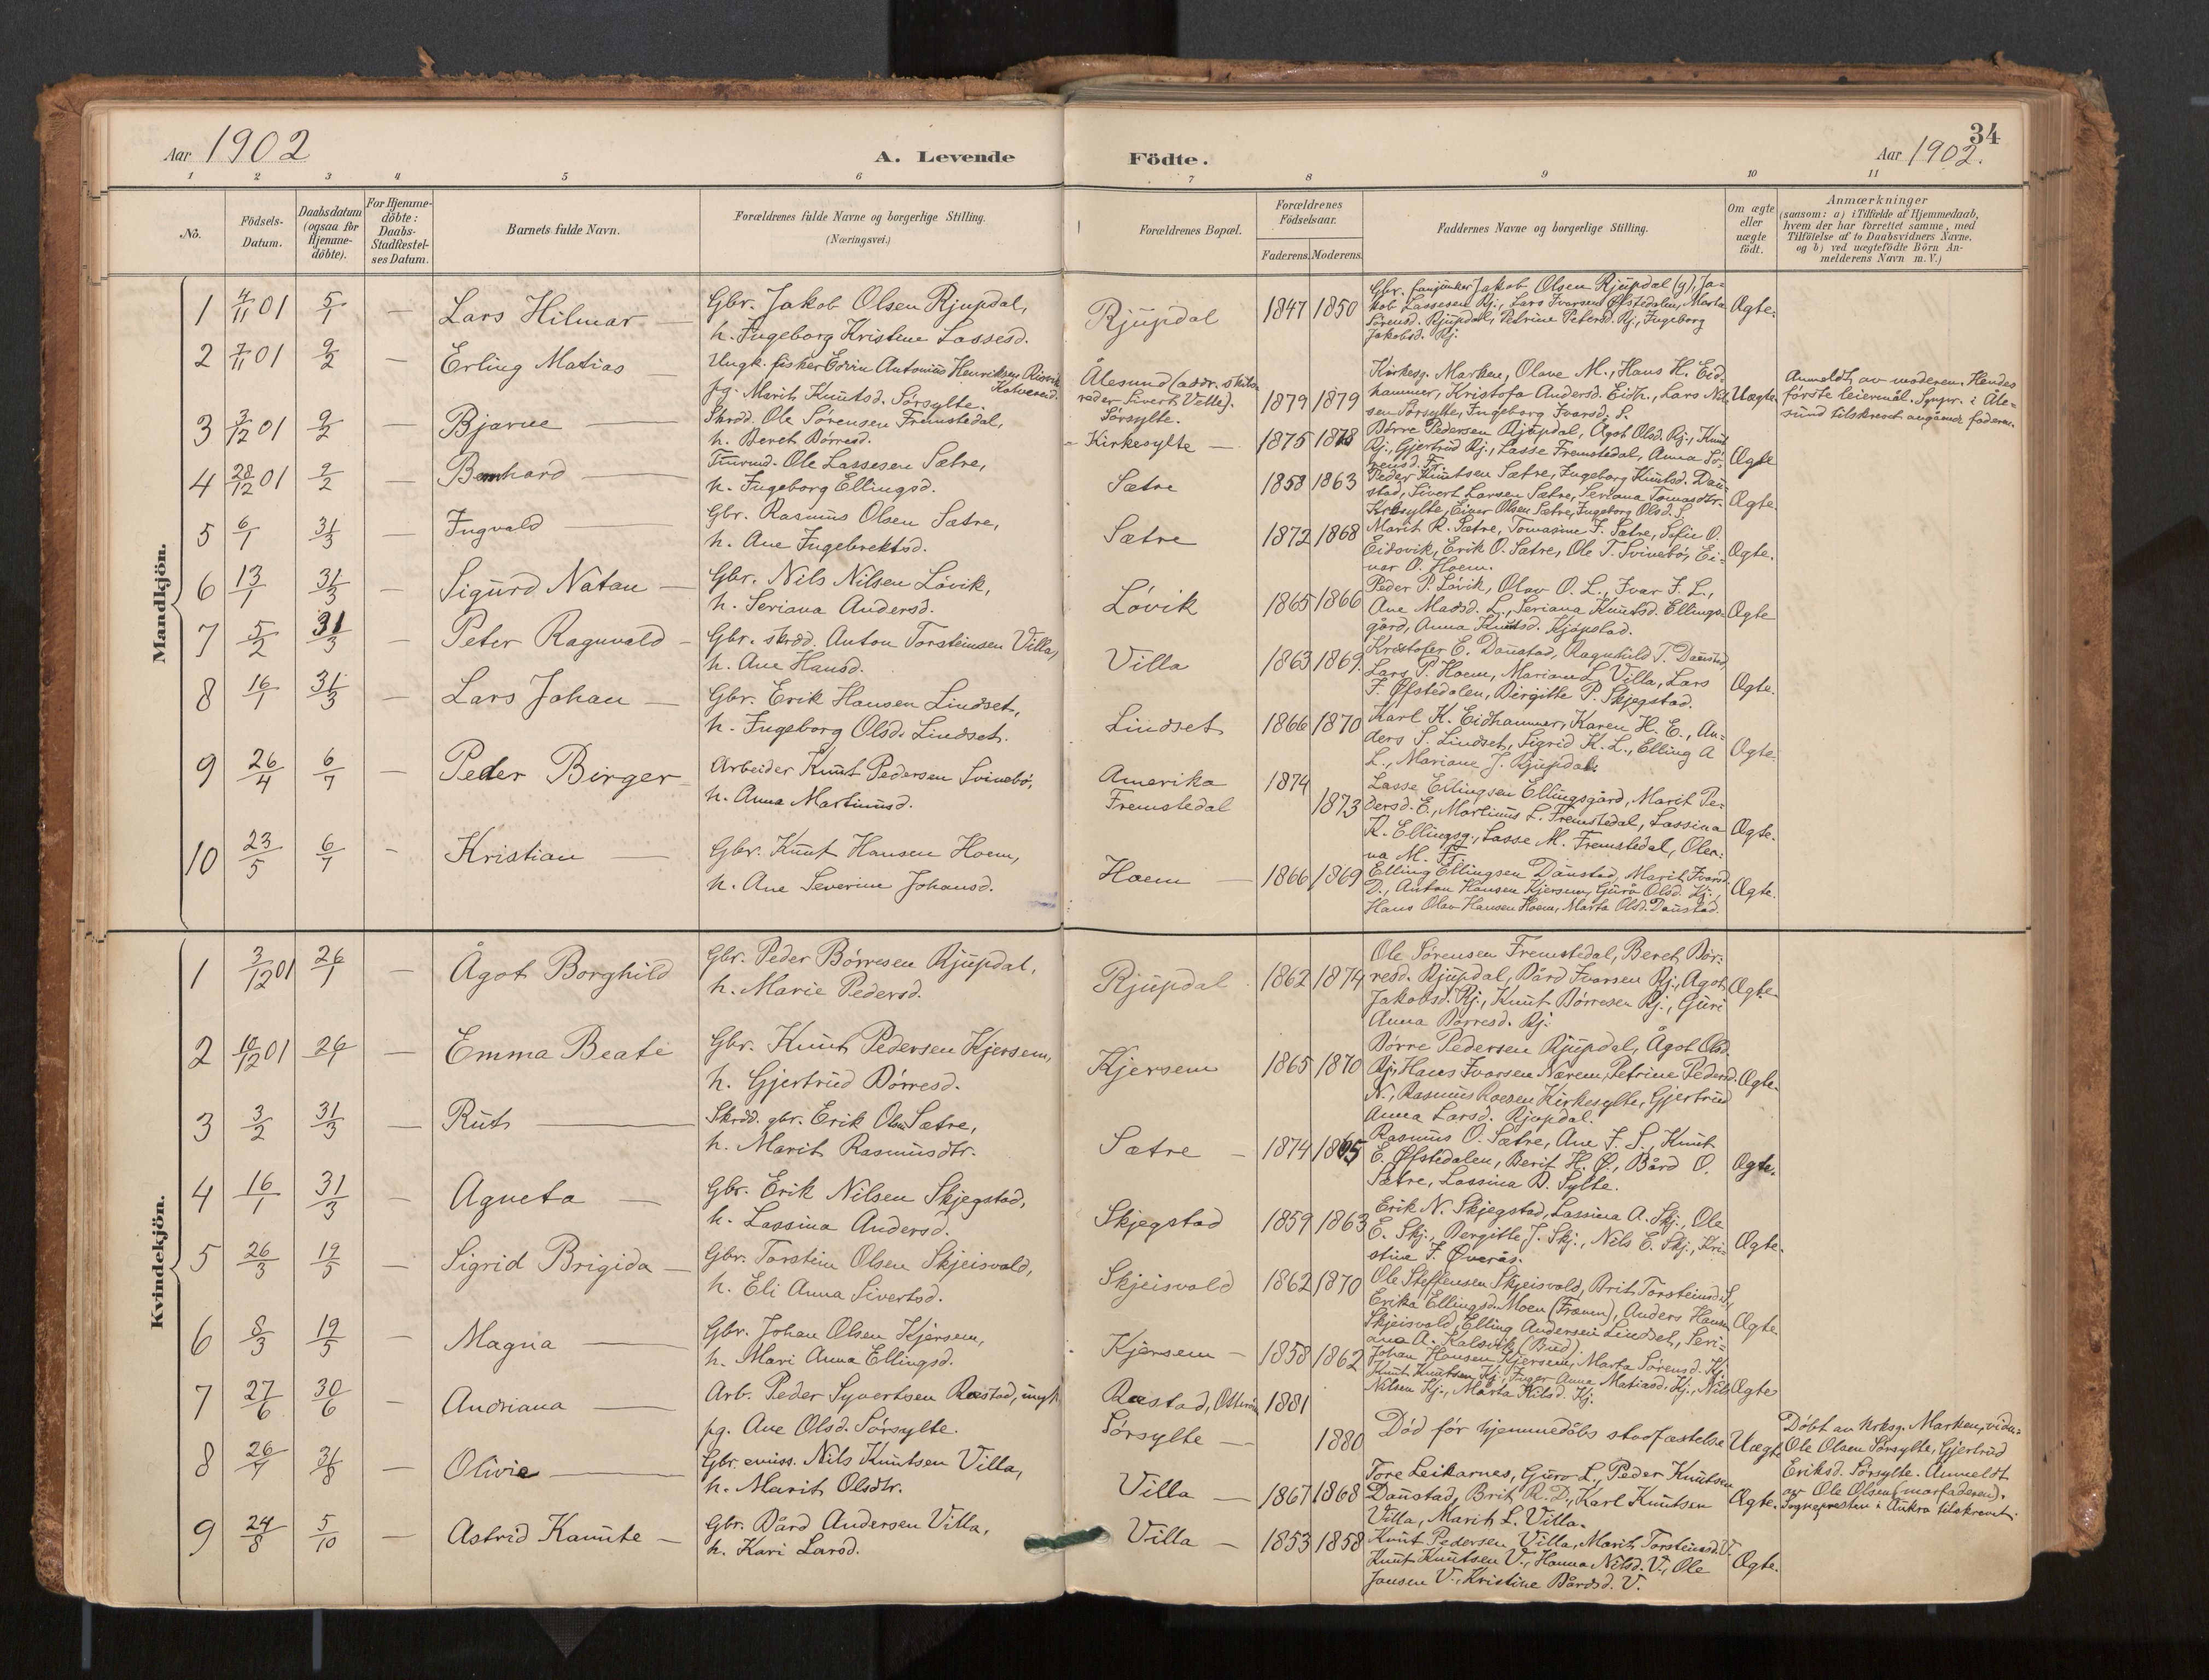 34
Aar 1902
A. Levende
Födte.
Aar 1902.
1 2 3 4 5 6 7 8 9 10 11
No.
Födsels-
Datum.
Daabsdatum
(ogsaa for
Hjemme-
döbte).
For Hjemme-
döbte:
Daabs-
Stadfestel-
ses Datum.
Barnets fulde Navn.
Forældrenes fulde Navne og borgerlige Stilling.
(Næringsvei.)
Forældrenes Bopæl.
Forældrenes
Födselsaar.
Faderens. Moderens.
Faddernes Navne og borgerlige Stilling.
Om ægte
eller
uægte
födt.
Anmærkninger
(saasom: a) i Tilfælde af Hjemmedaab,
hvem der har forrettet samme, med
Tilföielse af to Daabsvidners Navne,
og b) ved uægtefödte Börn An-
melderens Navn m. V.)
Mandkjön.
1 4/11 01 5/1 — Lars Hilmar —
Gbr. Jakob Olsen Rjupdal,
h. Ingeborg Kristine Lassesd.
Rjupdal 1847 1850
Gbr. fanejunker Jakob Olsen Rjupdal (g), Ja-
kob Lassesen Rj., Lars Ivarsen Øfstedalen, Marta
Sörensd. Rjupdal, Petrine Petersd. Rj., Ingeborg
Jakobsd. Rj.
Ægte.
2 7/11 01 9/2 — Erling Matias —
Ungk. fisker Edvin Antonius Henriksen
pg. Marit Knutsd. Sörsylte.
Ålesund (adr. skib-
reder Sivert Vette).
Sörsylte.
1879 1879
Kirkesg. Marken, Olave M., Hans H. Eid-
hammer, Kristofa Andersd. Eidh., Lars Nil-
sen Sörsylte, Ingeborg Ivarsd. S.
Uægte
Anmeldt av moderen. Hendes
förste leiermål. Sognpr. i Åle-
sund tilskrevet angående faderen.
3 3/12 01 9/2 Bjarne —
Skrdd. Ole Sörensen Fremstedal,
h. Beret Börresd.
Kirkesylte — 1875 1878
Börre Pedersen Rjupdal, Agot Olsd. Rj., Knut
Rj., Gjertrud Rj., Lasse Fremstedal, Anna Sö-
rensd. Fr.
Ægte
4 28/12 01 9/2 — Bernhard —
Tmrmd. Ole Lassesen Sætre,
h. Ingeborg Ellingsd.
Sætre 1858 1863
Peder Knutsen Sætre, Ingeborg Knutsd. Dau-
stad, Sivert Larsen Sætre, Seriana Tomasdtr.
Krksylte, Einar Olsen Sætre, Ingeborg Olsd. S.
Ægte.
5 6/1 31/3 — Ingvald —
Gbr. Rasmus Olsen Sætre,
h. Ane Ingebrektsd.
Sætre 1872 1868
Marit R. Sætre, Tomasine I. Sætre, Sofie O.
Eidsvik, Erik O. Sætre, Ole T. Svinebö, Ei-
nar O. Hoem.
Ægte.
6 13/1 31/3 — Sigurd Natan —
Gbr. Nils Nilsen Lövik,
h. Seriana Andersd.
Lövik 1865 1866
Peder P. Lövik, Olav O. L., Ivar I. L.,
Ane Madsd. L., Seriana Knutsd. Ellings-
gård, Anna Knutsd. Kjöpstad.
Ægte
7 5/2 31/3 — Peter Ragnvald —
Gbr. skrdd. Anton Torsteinsen Villa,
h. Ane Hansd.
Villa 1863 1869.
Kristofer E. Daustad, Ragnhild T. Daustad,
Lars P. Hoem, Mariane L. Villa, Lars
I. Øfstedalen, Birgitte P. Skjegstad.
Ægte.
8 16/1 31/3 — Lars Johan —
Gbr. Erik Hansen Lindset,
h. Ingeborg Olsd. Lindset.
Lindset 1866 1870
Karl K. Eidhammer, Karen H. E., An-
ders S. Lindset, Sigrid K. L., Elling A
L., Mariane J. Rjupdal.
Ægte.
9 26/4 6/7 — Peder Birger —
Arbeider Knut Pedersen Svinebö,
h. Anna Martinusd.
Amerika 1874
Fremstedal 1873
Lasse Ellingsen Ellingsgård, Marit Pe-
dersd. E., Martinus L. Fremstedal, Lassina
K. Ellingsg., Lasse M. Fremstedal, Olea-
na M. Fr.
Ægte.
10 23/5 6/7 - Kristian —
Gbr. Knut Hansen Hoem,
h. Ane Severine Johansd.
Hoem — 1866 1869
Elling Ellingsen Daustad, Marit Ivarsd.
D., Anton Hansen Kjersem, Gurö Olsd. Kj.,
Hans Olav Hansen Hoem, Marta Olsd. Daustad.
Ægte.
Kvindekjön.
1 3/12 01 26/1 — Ågot Borghild
Gbr. Peder Börresen Rjupdal,
h. Marie Pedersd.
Rjupdal 1862 1874
Ole Sörensen Fremstedal, Beret Bör-
resd. Rjupdal, Bård Ivarsen Rj., Agot
Jakobsd. Rj., Knut Börresen Rj., Guri
Anna Börresd. Rj.
Ægte.
2 10/12 01 26/1 — Emma Beate
Gbr. Knut Pedersen Kjersem,
h. Gjertrud Börresd.
Kjersem 1865 1870
Börre Pedersen Rjupdal, Ågot Olsd.
Rj., Hans Ivarsen Nærem, Petrine Pedersd.
N., Rasmus Roesen Kirkesylte, Gjertrud
Anna Larsd. Rjupdal.
Ægte.
3 3/2 31/3 — Rut —
Skrdd. gbr. Erik Olsen Sætre,
h. Marit Rasmusdtr.
Sætre — 1874 1865
Rasmus O. Sætre, Ane I. S., Knut
E. Øfstedalen, Berit H. Ø., Bård O.
Sætre, Lassina B. Sylte.
Ægte.
4 16/1 31/3 — Agneta —
Gbr. Erik Nilsen Skjegstad,
h. Lassina Andersd.
Skjegstad 1859 1863
Erik N. Skjegstad, Lassina A. Skj., Ole
E. Skj., Bergitte J. Skj., Nils E. Skj., Kri-
stine I. Överås.
Ægte.
5 26/3 19/5 — Sigrid Brigida —
Gbr. Torstein Olsen Skjeisvold,
h. Eli Anna Sivertsd.
Skjeisvold 1862 1870
Ole Steffensen Skjeisvold, Brit Torsteinsd. S.,
Erika Ellingsd. Moen (Frænen), Anders Hansen
Skjeisvold, Elling Andersen Lindset, Seri-
ana A. Kalsvik (Bud).
Ægte
6 8/3 19/5 — Magna —
Gbr. Johan Olsen Kjersem,
h. Mari Anna Ellingsd.
Kjersem — 1858 1862
Johan Hansen Kjersem, Marta Sörensd. Kj.,
Knut Knutsen Kj., Inger Anna Matiasd. Kj., Nils
Nilsen Kj., Marta Nilsd. Kj.
Ægte
7 27/6 30/6 — Andriana —
Arb. Peder Syvertsen Rastad, ungk.
pg. Ane Olsd. Sörsylte.
Rastad, 1881
Sörsylte — 1880
Död för hjemmedåbs stadfæstelse
Uægte
Döbt av krksg. Marken, vidn.:
Ole Olsen Sörsylte, Gjertrud
Eriksd. Sörsylte. Anmeldt
av Ole Olsen (morfaderen).
Sognepresten i Aukra tilskrevet.
8 26/7 31/8 — Olivie —
Gbr. emiss. Nils Knutsen Villa,
h. Marit Olsdtr.
Villa — 1867 1868
Tore Leikarnes, Guro L., Peder Knutsen
Daustad, Brit R. D., Karl Knutsen
Villa, Marit L. Villa.
Ægte.
9 24/8 5/10 — Astrid Kamite —
Gbr. Bård Andersen Villa,
h. Kari Larsd.
Villa — 1853 1858
Knut Pedersen Villa, Marit Torsteinsd. V.
Knut Knutsen V., Hanna Nilsd. V., Ole
Jansen V., Kristine Bårdsd. V.
Ægte.